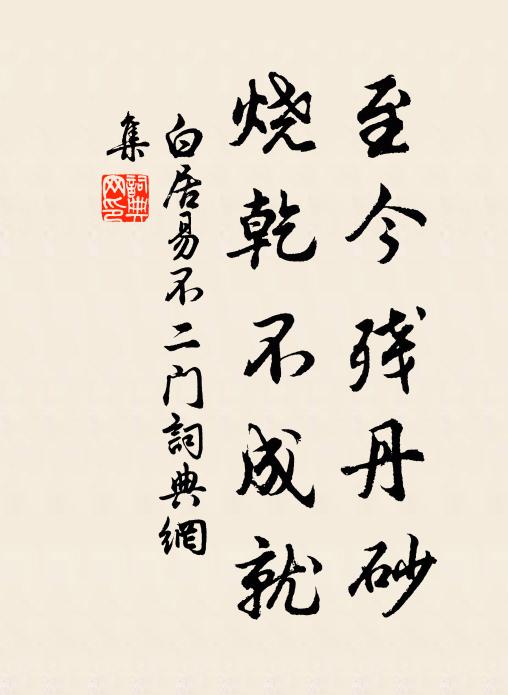 至今残丹砂
烧乾不成就
白居易不二门詞典網
集
詞典网印